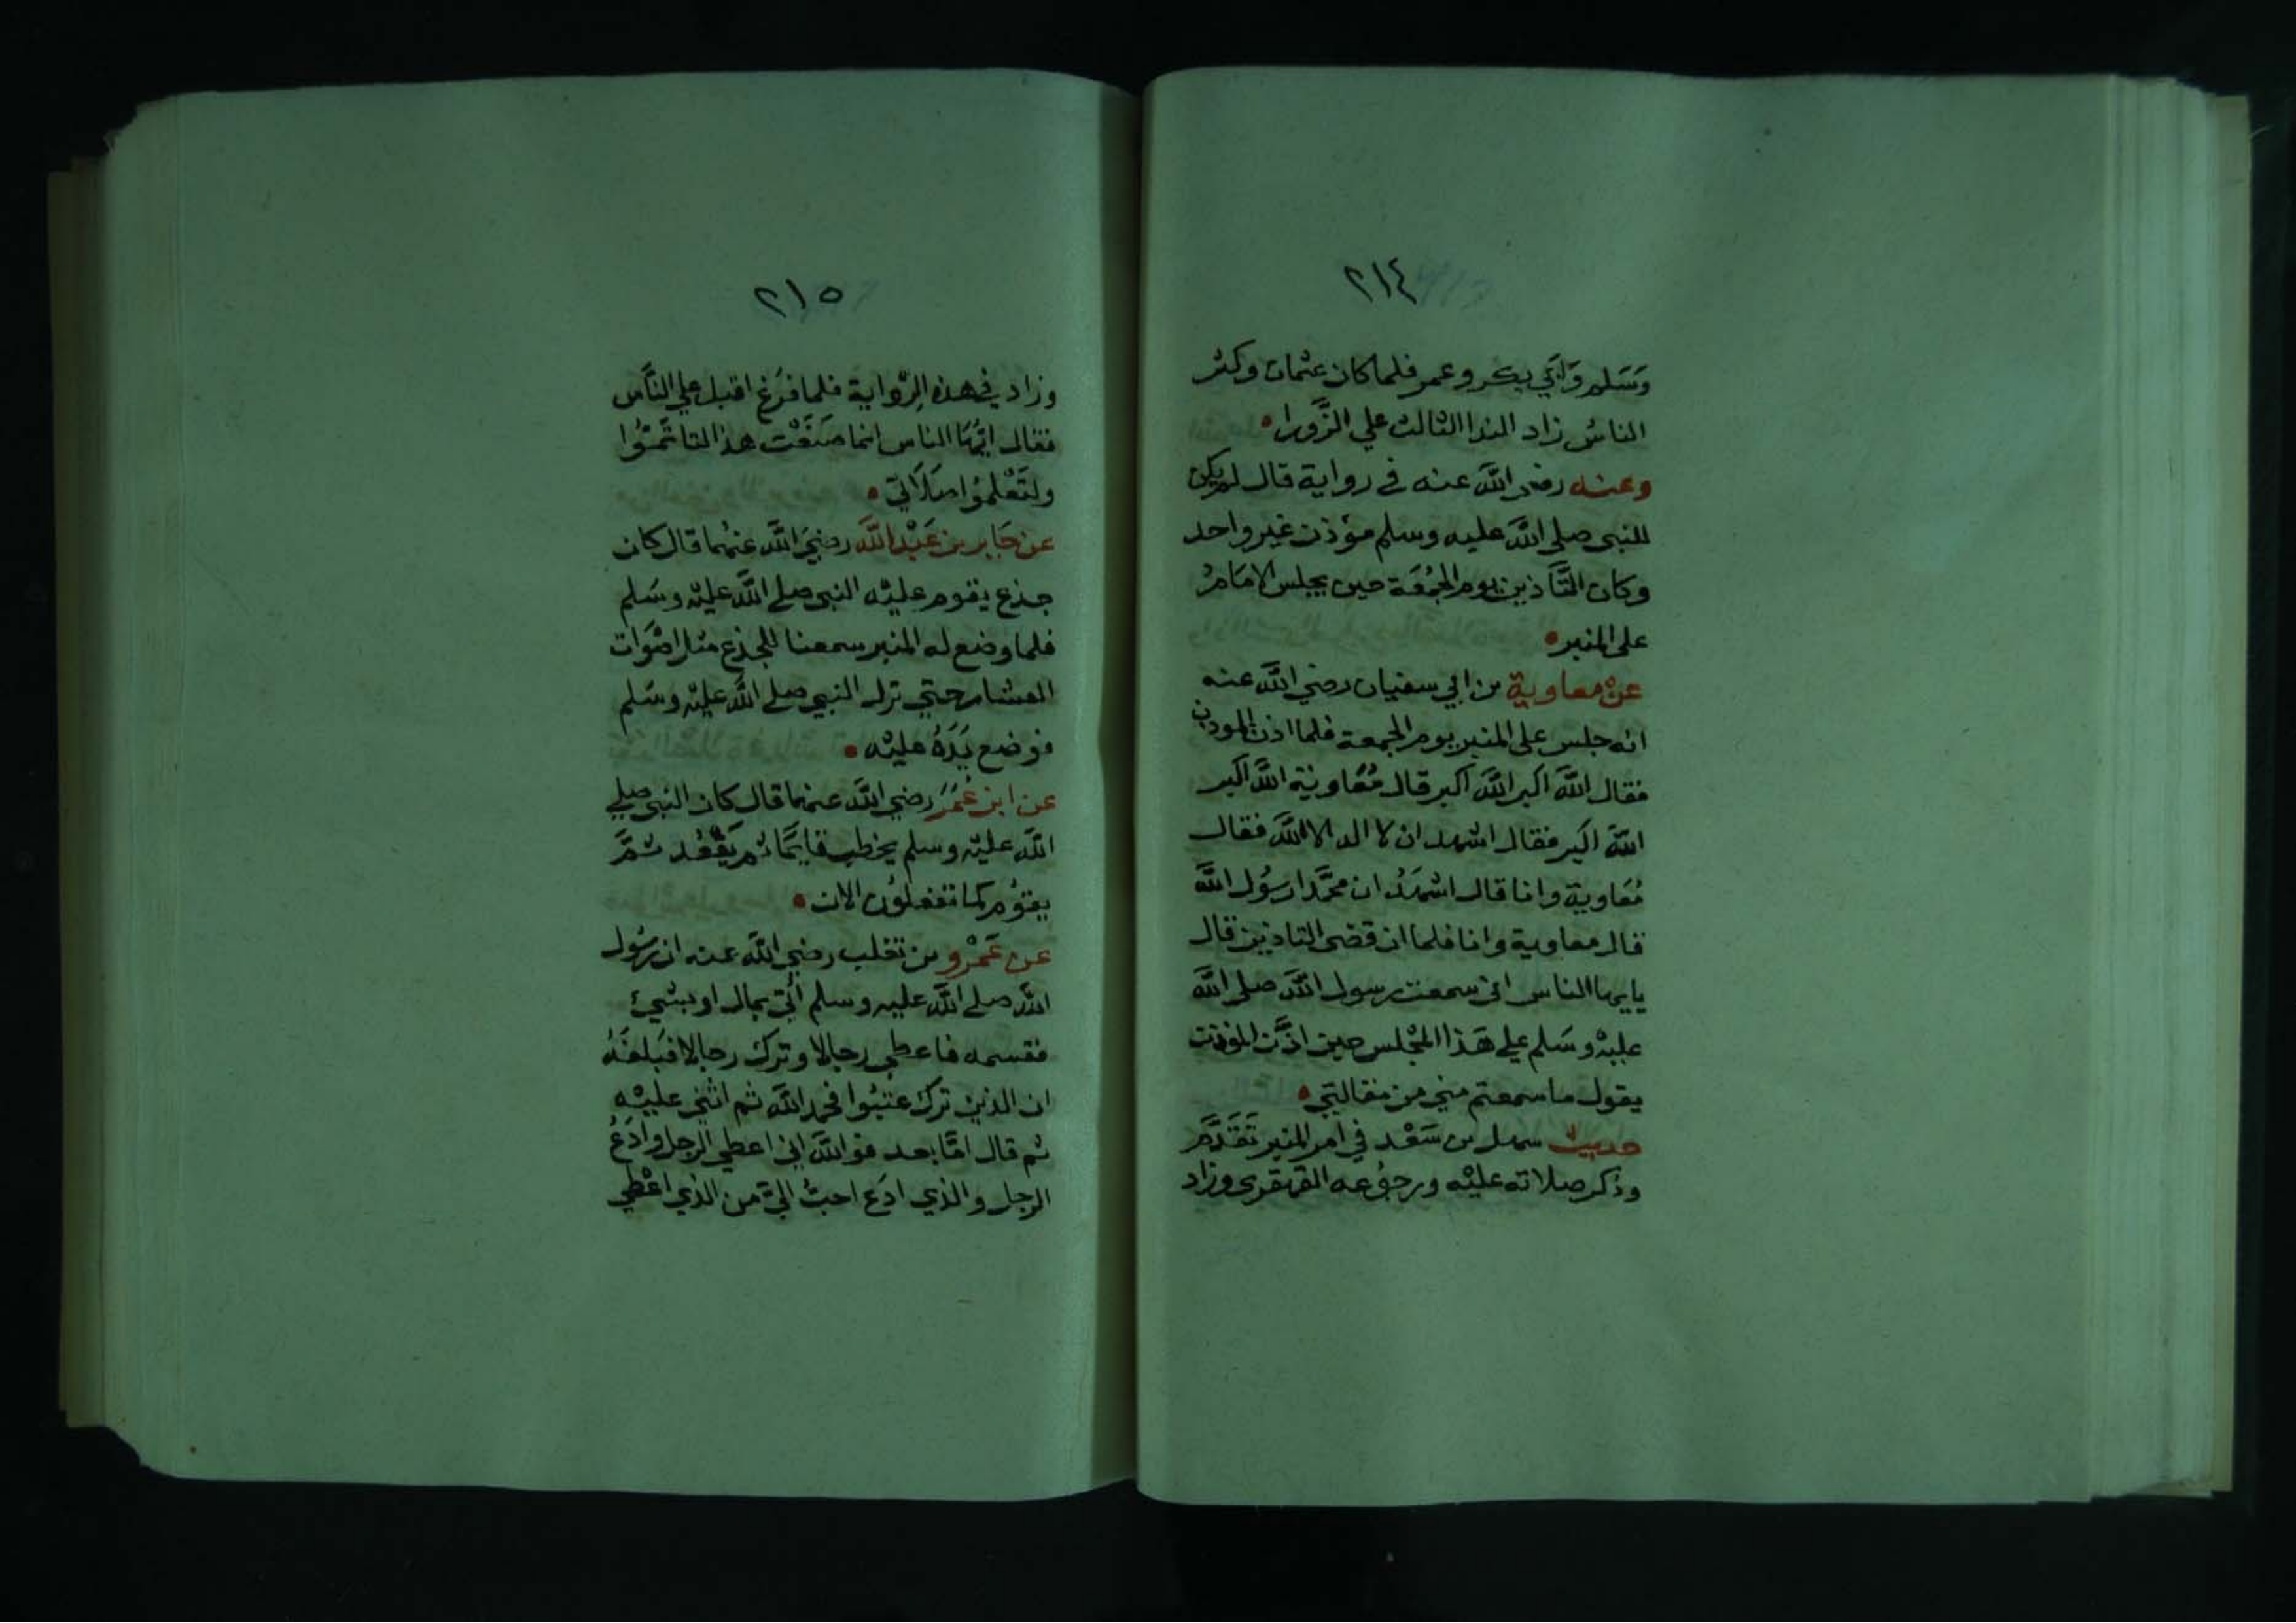 ٢١٤
وَسَلم وَابَي بكر وعمر فلما كان عثمان وكثر
الناسُ زاد الندا الثالث علي الزَّورا
وعنه رضي اللّه عنه في رواية قال لم يكن
للنبي صلى اللّه عليه وسلم مؤذن غير واحد
وكان التَّأذين يوم الجمُعَة حين يجلس الامَامُ
على المنبر
عنْ معاوية بن ابي سفيان رضي اللّه عنه
انه جلس على المنبر يوم الجمعة فلما اذن الموذن
فقال اللّه اكبر اللّه اكبر قال مُعَاوية اللّه اكبر
اللّه اكبر فقال اشهد ان لا اله الا اللّه فقال
مُعَاوية وانا قال اشهَدُ ان محمَّدا رسُول اللّه
قال معاوية وانا فلما ان قضى التاذين قال
يايها الناس اني سمعت رسول اللّه صلى اللّه
عليْه وسَلم علي هَذا المجْلس حين اذَّن الموذن
يقول ما سمعتم مني من مقالتي
حديث سهل بن سَعْد في امر المنبر تَقَدَّم
وذكر صلاته عليْه ورجوُعه القهقرى وزاد
٢١٥
وزاد في هذه الرِّواية فلما فرَغ اقبل علي النَّاس
فقال ايُّهَا الناس انما صنَعْت هذا لتاتَمُّوا
ولتَعْلموُا صَلَاتي
عن جَابر بن عَبْد اللّه رضيَ اللّه عنهُما قال كان
جذع يقوم عليْه النبي صلي اللّه عليْه وسَلم
فلما وضع له المنبر سمعنا للجذع مثل اصْوَات
العشار حتي نزل النبي صلي اللّه عليْه وسَلم
فوضع يَدَهُ عليْه
عن ابن عُمَرَ رضي اللّه عنهما قال كان النبي صلي
اللّه عليْه وسلم يخطب قايمًا ثم يَقْعُد ثمَّ
يقوُم كما تفعلوُن الان
عن عَمْرو بن تغلب رضي اللّه عنه ان رسُول
اللّه صلي اللّه عليه وسلم اُتي بمال او بشيئ
فقسمه فاعطي رجالا وترك رجالا فبَلغَهُ
ان الذين ترك عتبُوا فحمد اللّه ثم اثني عليْه
ثم قال امَّا بعد فو اللّه اني اعطي الرجل وادَعُ
الرجل والذي ادَع احبُّ اليَّ من الذي اعْطي